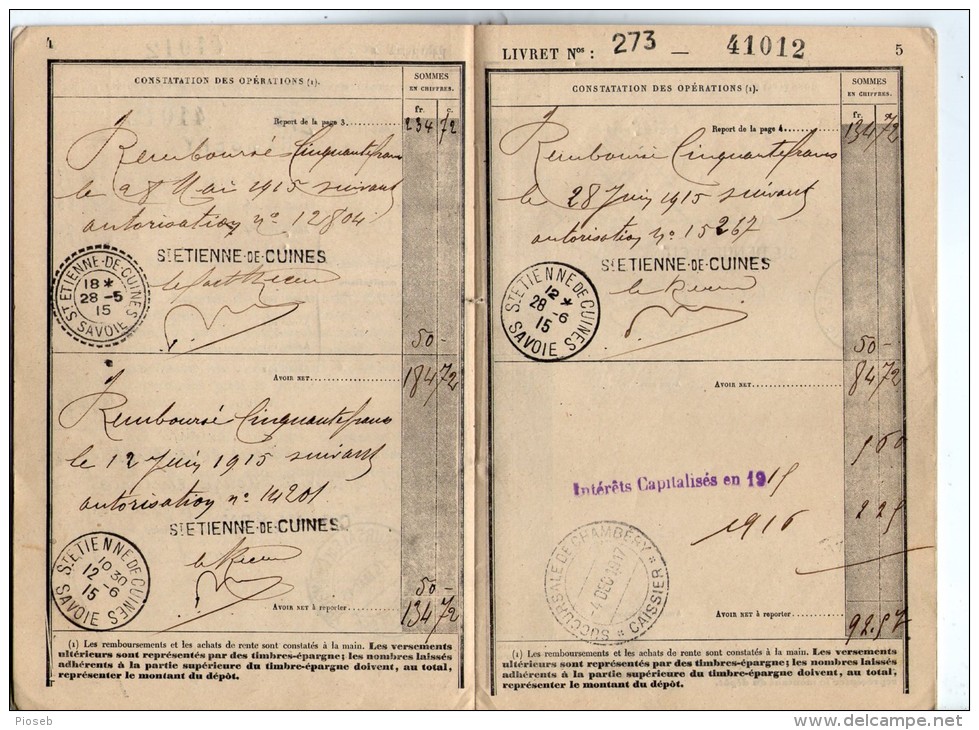 4
CONSTATATION DES OPÉRATIONS (1).
SOMMES
EN CHIFFRES.
fr. c.
Report de la page 3 234 72
Remboursé Cinquante francs
le 28 Mai 1915 suivant
autorisation no 12804.
ST ETIENNE-DE-CUINES
ST ETIENNE-DE-CUINES
18*
28 -5
15
SAVOIE
50 -
AVOIR NET 184 72
Remboursé Cinquante francs
le 12 Juin 1915 suivant
autorisation no 14201.
ST ETIENNE-DE-CUINES
le Receveur
ST ETIENNE DE CUINES
10 30
12 -6
15
SAVOIE
50 -
AVOIR NET à reporter 134 72
(1) Les remboursements et les achats de rente sont constatés à la main. Les versements
ultérieurs sont représentés par des timbres-épargne; les nombres laissés
adhérents à la partie supérieure du timbre-épargne doivent, au total,
représenter le montant du dépôt.
LIVRET Nos : 273 — 41012
5
CONSTATATION DES OPÉRATIONS (1).
SOMMES
EN CHIFFRES.
fr.
Report de la page 4 134 72
Remboursé Cinquante francs
le 28 Juin 1915 suivant
autorisation no 15267
ST ETIENNE-DE-CUINES
le Receveur
ST ETIENNE DE CUINES
12 *
28 -6
15
SAVOIE
50 -
AVOIR NET 84 72
Intérêts Capitalisés en 1915
1916 2 25
SUCCURSALE DE CHAMBÉRY
4 DEC 1917
CAISSIER
AVOIR NET à reporter 92.57
(1) Les remboursements et les achats de rente sont constatés à la main. Les versements
ultérieurs sont représentés par des timbres-épargne; les nombres laissés
adhérents à la partie supérieure du timbre-épargne doivent, au total,
représenter le montant du dépôt.
Pioseb
www.delcampe.net